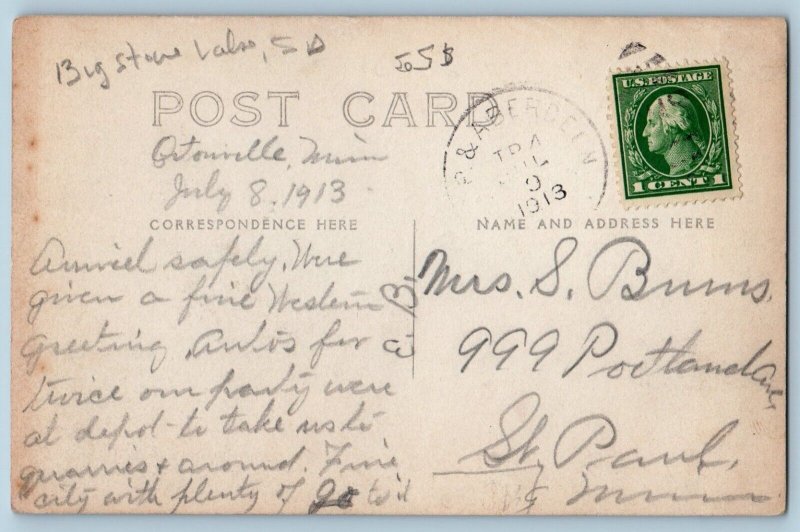 Big Stone Lake, S D
55$
POST CARD
U.S. POSTAGE
1 CENT 1
& ABERDEEN
TR 4
JUL
9
1913
Ortonville, Minn
July 8, 1913
CORRESPONDENCE HERE
NAME AND ADDRESS HERE
Arrived safely. Were
given a fine Western
Greeting. Autos for
twice our party were
at depot to take us to
quarries & around. Fine
city with plenty of go to it
C. B.
Mrs. S. Burns
999 Portland Ave,
St. Paul,
Minn